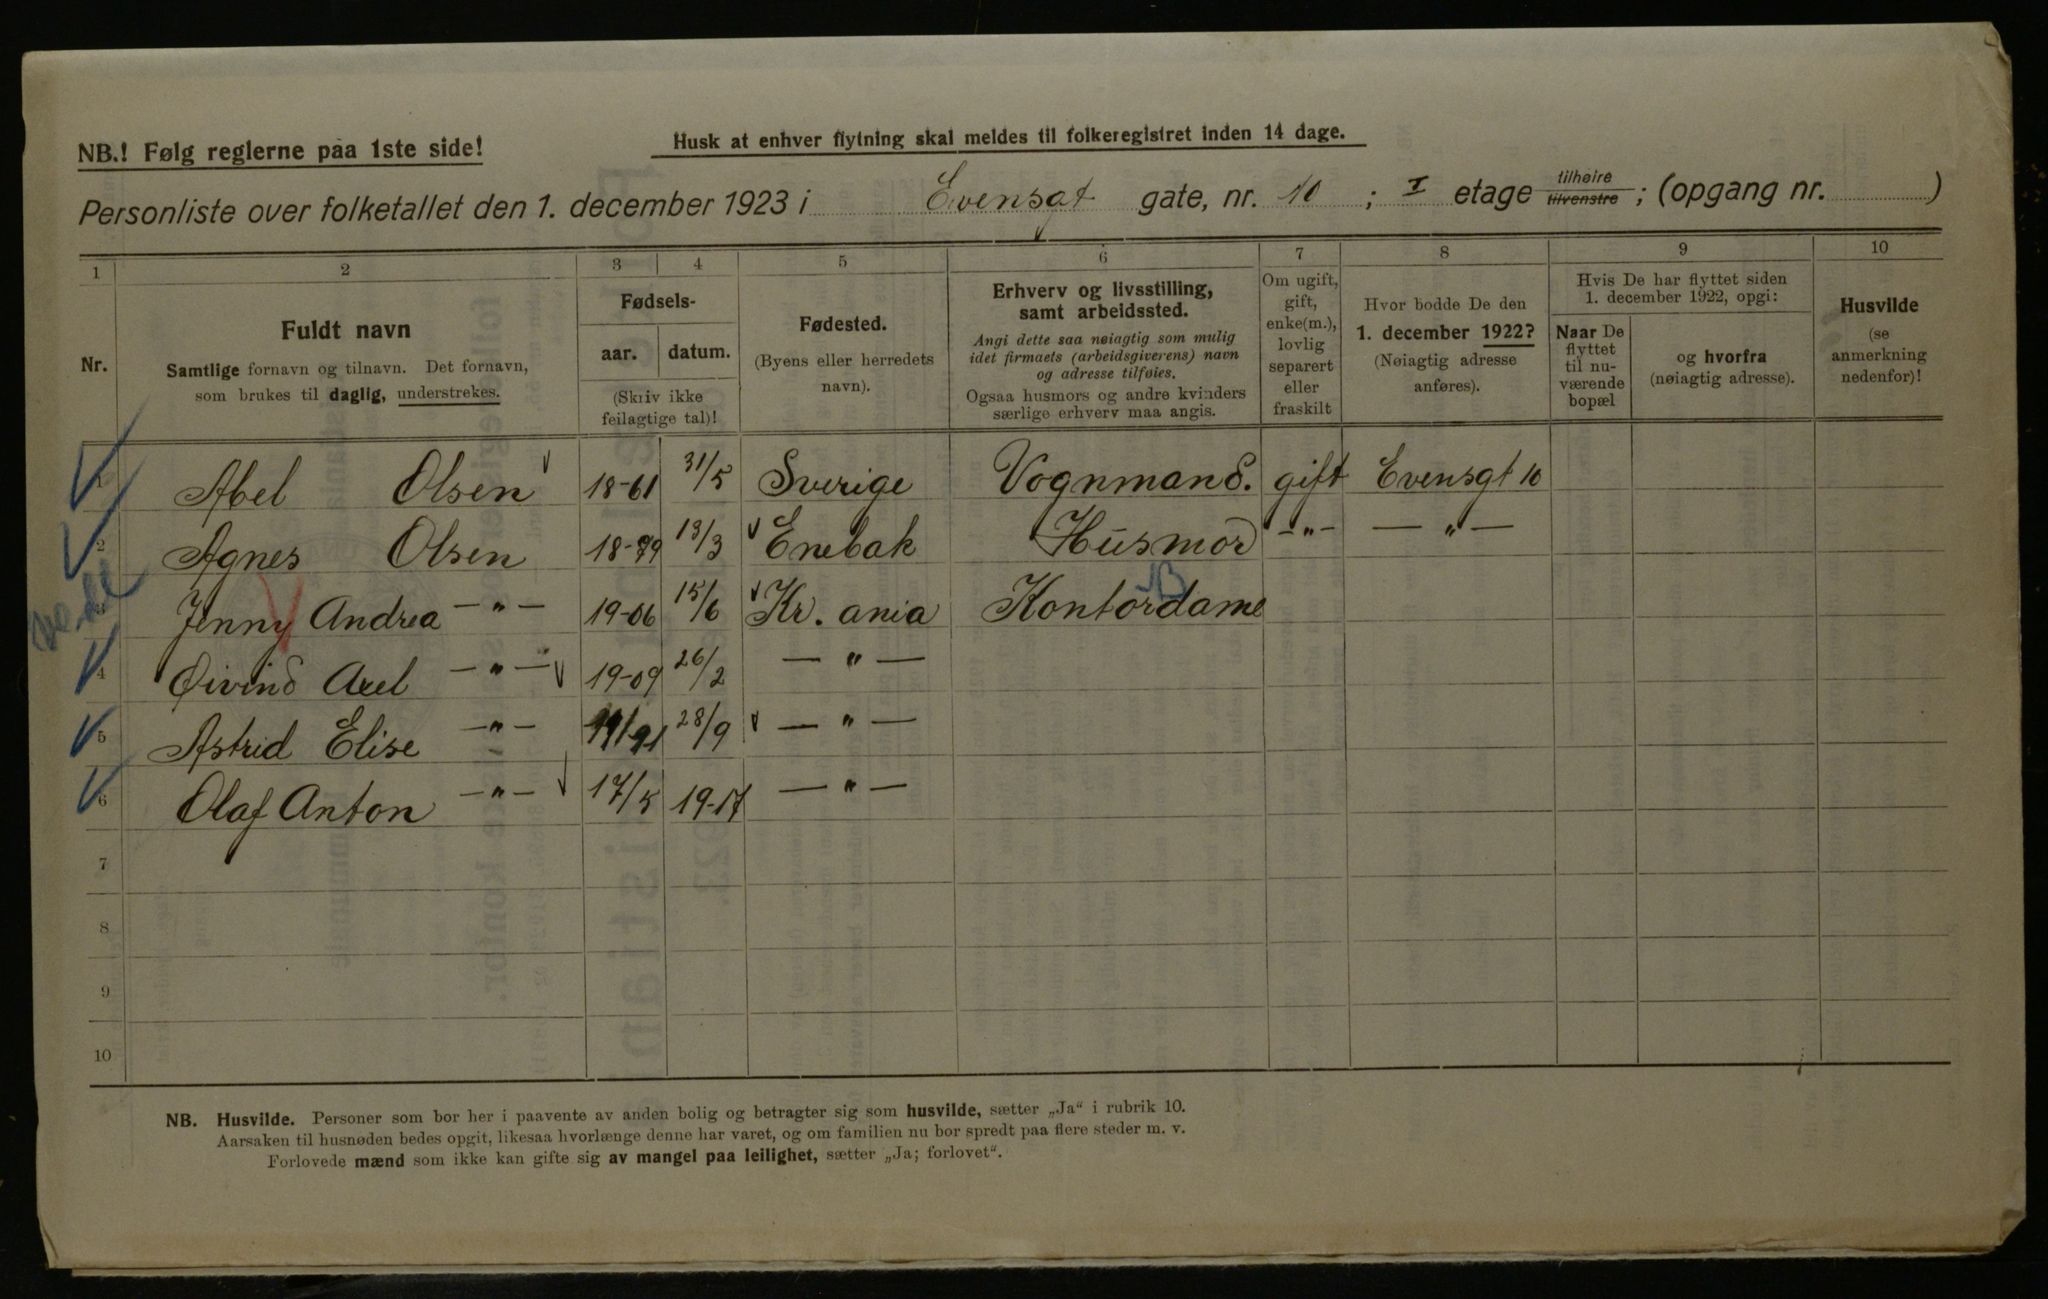 NB.! Følg reglerne paa 1ste side!
Husk at enhver flytning skal meldes til folkeregistret inden 14 dage.
Personliste over folketallet den 1. december 1923 i Evensgt gate, nr. 10 ; I etage tilhøire tilvenstre ; (opgang nr. )
1 2 3 4 5 6 7 8 9 10
Nr.
Fuldt navn
Samtlige fornavn og tilnavn. Det fornavn,
som brukes til daglig, understrekes.
Fødsels-
aar. datum.
(Skriv ikke
feilagtige tal)!
Fødested.
(Byens eller herredets
navn).
Erhverv og livsstilling,
samt arbeidssted.
Angi dette saa nøiagtig som mulig
idet firmaets (arbeidsgiverens) navn
og adresse tilføies.
Ogsaa husmors og andre kvinders
særlige erhverv maa angis.
Om ugift,
gift,
enke(m.),
lovlig
separert
eller
fraskilt
Hvor bodde De den
1. december 1922?
(Nøiagtig adresse
anføres).
Hvis De har flyttet siden
1. december 1922, opgi:
Naar De
flyttet
til nu-
værende
bopæl
og hvorfra
(nøiagtig adresse).
Husvilde
(se
anmerkning
nedenfor)!
Abel Olsen 18-61 31/5 Sverige Vognmand. gift Evensgt 10
2 Agnes Olsen 18-79 13/3 Enebak Husmor -„- -„-
3 Jenny Andrea -„- 19-06 15/6 Kr. ania Kontordame
4 Øivind Axel -„- 19-09 26/2 -„-
5 Astrid Elise -„- 28/9 -„-
6 Olaf Anton -„- 17/5 19-17 -„-
7
8
9
10
NB. Husvilde. Personer som bor her i paavente av anden bolig og betragter sig som husvilde, sætter „Ja“ i rubrik 10.
Aarsaken til husnøden bedes opgit, likesaa hvorlænge denne har varet, og om familien nu bor spredt paa flere steder m. v.
Forlovede mænd som ikke kan gifte sig av mangel paa leilighet, sætter „Ja; forlovet“.